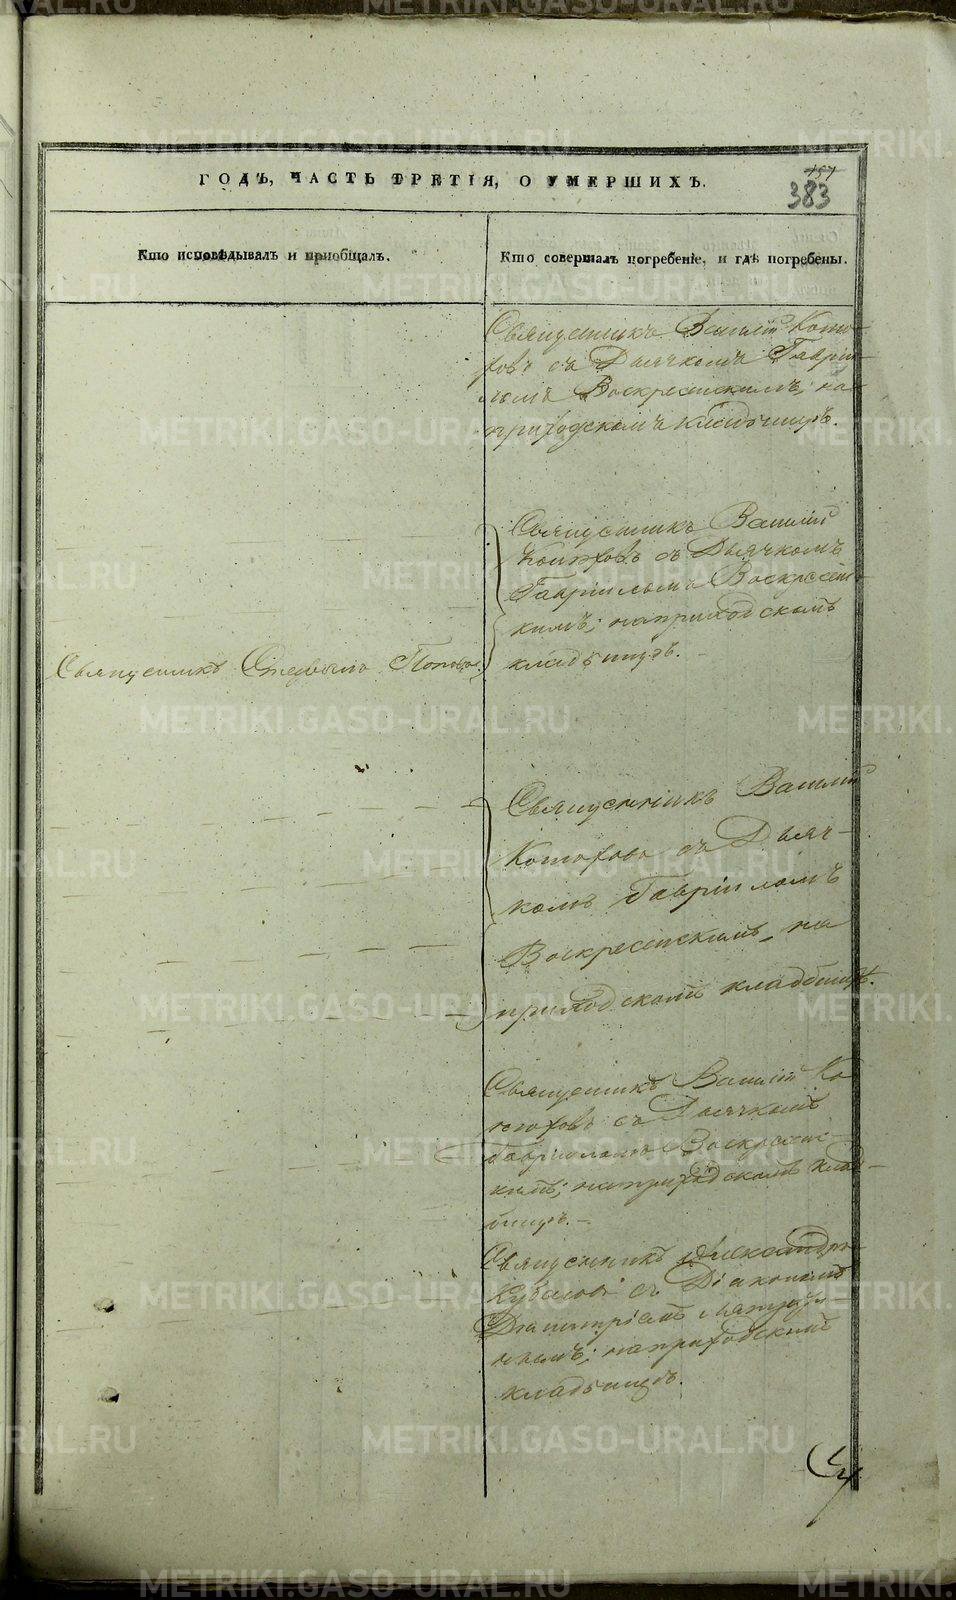 ГОДЪ, ЧАСТЬ ТРЕТІЯ, О УМЕРШИХЪ.
157
383
Кто исповѣдывалъ и приобщалъ.
Кто совершалъ погребеніе, и гдѣ погребены.
Священникъ Василій Кото-
ровъ съ Дьячкомъ Гавріи-
ломъ Воскресенскимъ; на
приходскомъ кладбищѣ.
Священникъ Василій
Которовъ съ Дьячкомъ
Гавріиломъ Воскресенс-
кимъ; на приходскомъ
кладбищѣ.
Священникъ Стефанъ Поповъ.
Священникъ Василій
Которовъ съ Дьяч-
комъ Гавріиломъ
Воскресенскимъ, на
приходскомъ кладбищѣ.
Священникъ Василій Ко-
торовъ съ Дьячкомъ
Гавріиломъ Воскресенс-
кимъ; на приходскомъ клад-
бищѣ. –
Священникъ Александръ
съ Діакономъ
Димитріемъ
на приходскомъ
кладбищѣ.
METRIKI.GASO-URAL.RU